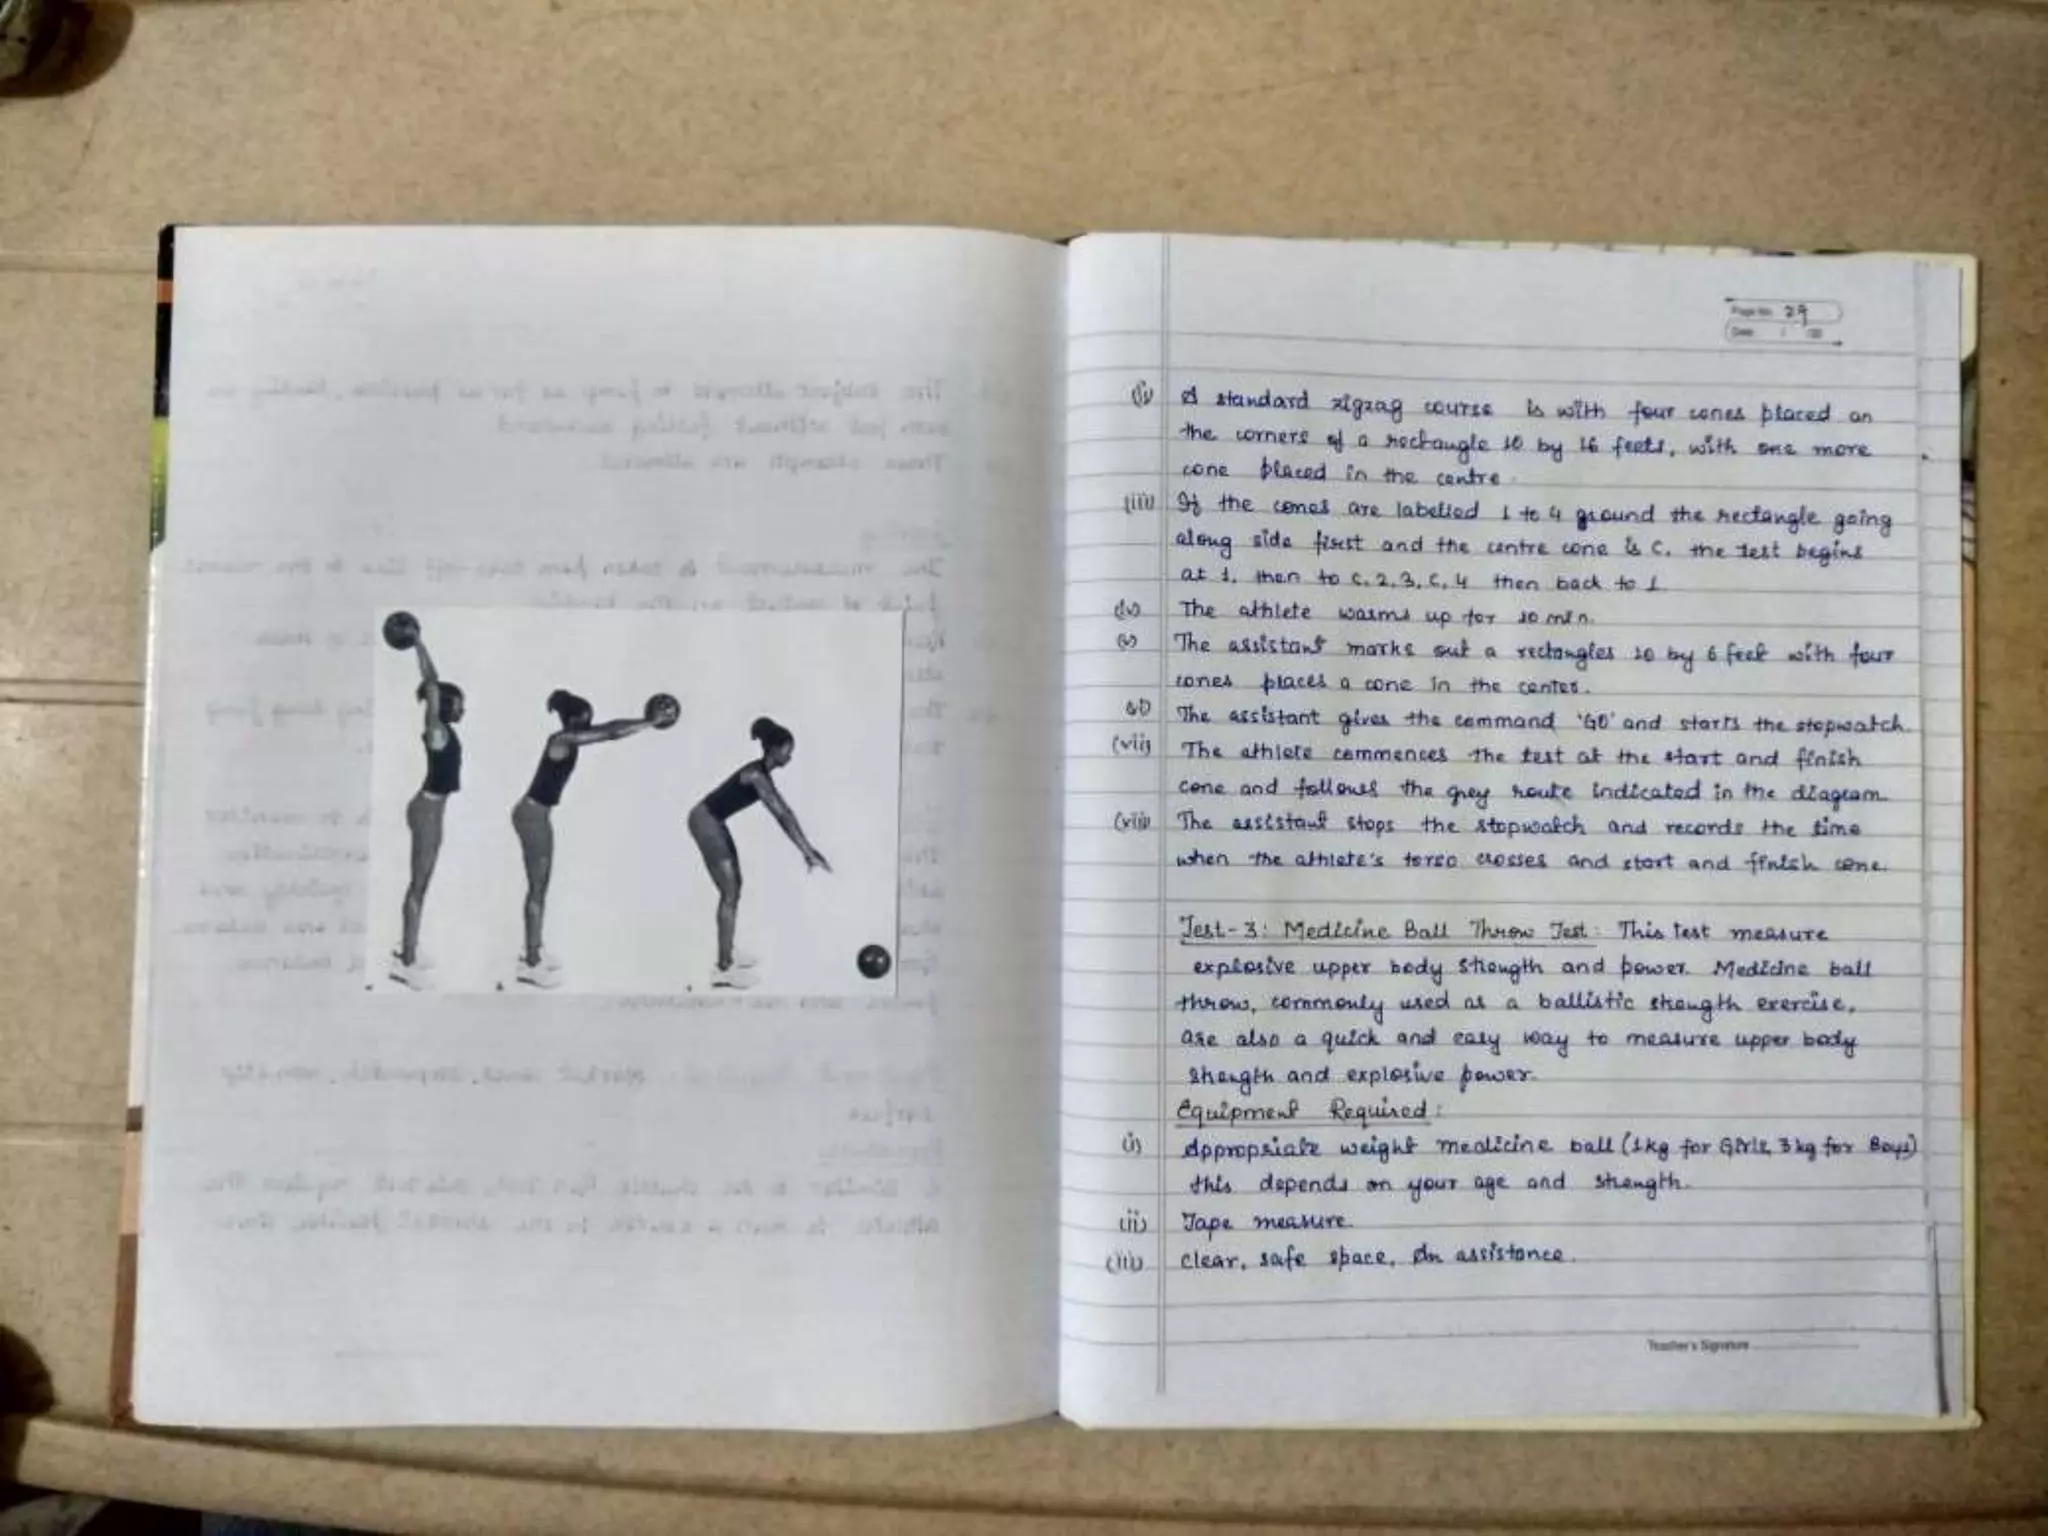 Page No. 29
Date
(ii) A standard zigzag course is with four cones placed on
the corners of a rectangle 10 by 16 feets, with one more
cone placed in the centre.
(iii) If the cones are labelled 1 to 4 around the rectangle going
along side first and the centre cone is C. the test begins
at 1. then to C, 2, 3, C, 4 then back to 1
(iv) The athlete warms up for 10 min.
(v) The assistant marks out a rectangles 10 by 6 feet with four
cones places a cone in the center.
vi) The assistant gives the command 'GO' and starts the stopwatch.
(vii) The athlete commences the test at the start and finish
cone and follows the grey route indicated in the diagram
(viii) The assistant stops the stopwatch and records the time
when the athlete's torso crosses and start and finish cone.
Test-3: Medicine Ball Throw Test: This test measure
explosive upper body strength and power. Medicine ball
throw, commonly used as a ballistic strength exercise,
are also a quick and easy way to measure upper body
strength and explosive power.
Equipment Required:
(i) Appropriate weight medicine ball (1kg for Girls, 3 kg for Boys)
this depends on your age and strength.
(ii) Tape measure.
(iii) Clear, safe space, An assistance.
Teacher's Signature